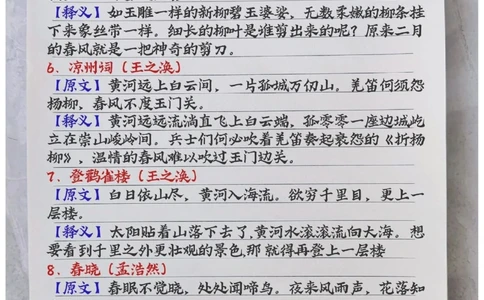 【释义】如玉雕一样的新柳碧玉婆娑，无数柔嫩的柳条挂
下来象丝带一样。细长的柳叶是谁剪出来的呢？原来二月
的春风就是一把神奇的剪刀。
6、凉州词（王之涣）
【原文】黄河远上白云间，一片孤城万仞山。羌笛何须怨
杨柳，春风不度玉门关。
【释义】黄河远远流淌直飞上白云端，孤零零一座边城屹
立在崇山峻岭间。兵士们何必吹着羌笛奏起哀怨的《折杨
柳》，温情的春风难以吹过玉门边关。
7、登鹳雀楼（王之涣）
【原文】白日依山尽，黄河入海流。欲穷千里目，更上一
层楼。
【释义】太阳贴着山落下去了，黄河水滚滚流向大海。想
要看到千里之外更壮观的景色，那就得再登上一层楼
8、春晓（孟浩然）
【原文】春眠不觉晓，处处闻啼鸟。夜来风雨声，花落知